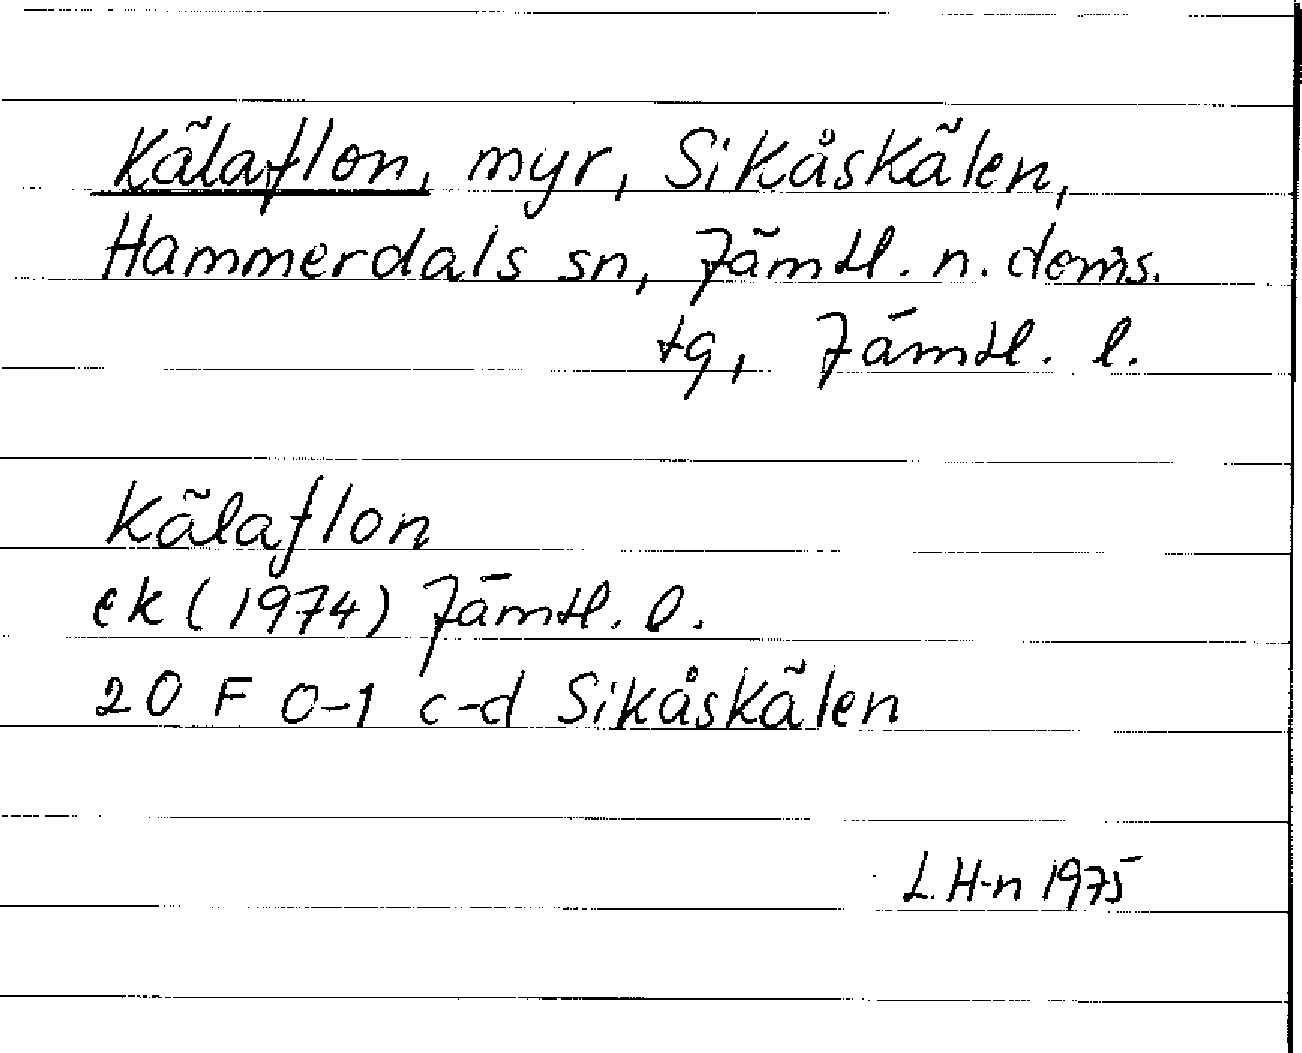 Kälaflon, myr, Sikåskälen,
Hammerdals sn, Jämtl. n. doms.
tg, Jämtl. l.
Kälaflon
ek (1974) Jämtl. l.
20 F 0-1 c-d Sikåskälen
L. H-n 1975